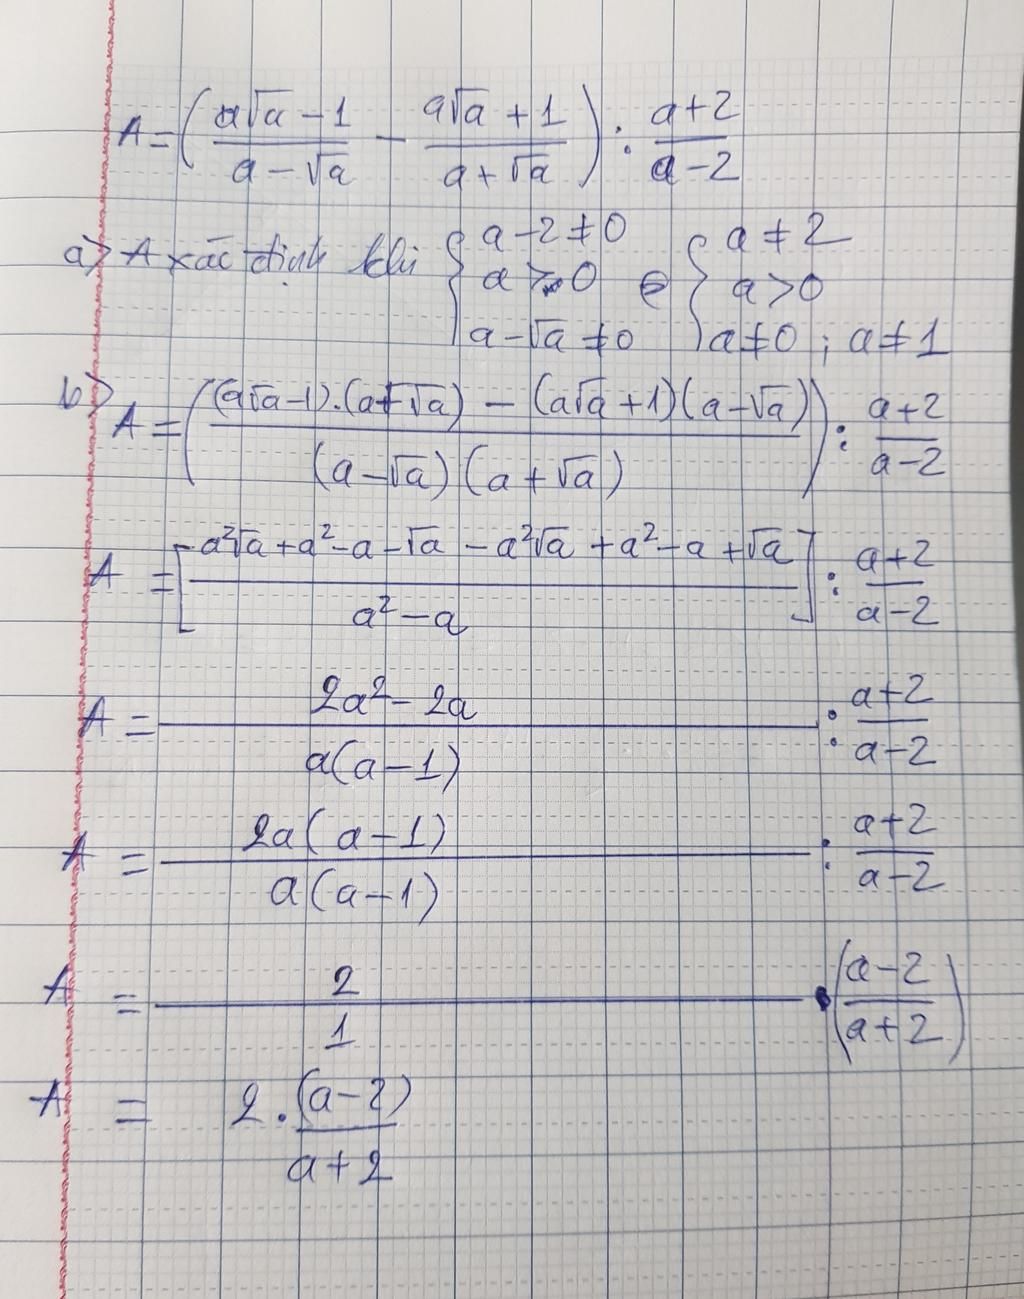 A = ( (a√a - 1)/(a - √a) - (a√a + 1)/(a + √a) ) : (a+2)/(a-2)
a) A xác định khi { a - 2 ≠ 0 ; a > 0 ; a - √a ≠ 0 ⇔ { a ≠ 2 ; a > 0 ; a ≠ 0 ; a ≠ 1
b) A = ( ((a√a - 1).(a + √a) - (a√a + 1)(a - √a))/((a - √a)(a + √a)) ) : (a+2)/(a-2)
A = [ (a²√a + a² - a - √a - a²√a + a² - a + √a)/(a² - a) ] : (a+2)/(a-2)
A = (2a² - 2a)/(a(a - 1)) : (a+2)/(a-2)
A = (2a(a - 1))/(a(a - 1)) : (a+2)/(a-2)
A = 2/1 . ((a-2)/(a+2))
A = 2 . (a-2)/(a+2)